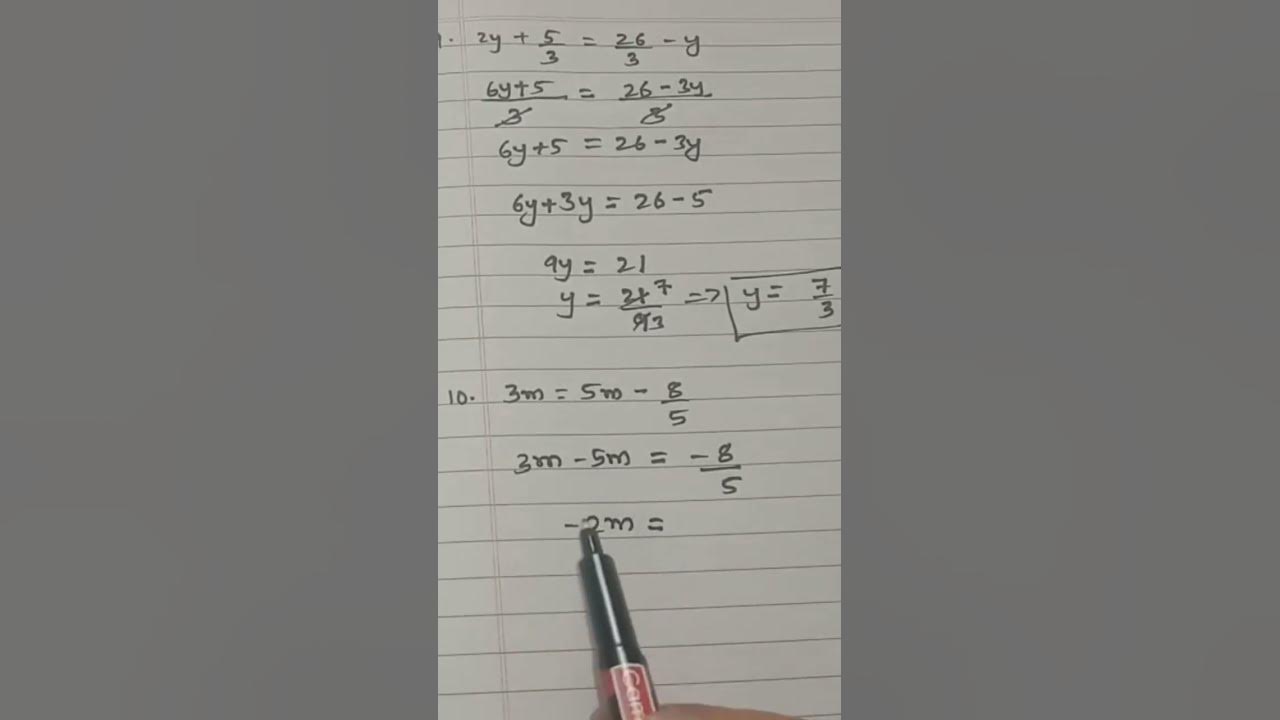 9. 2y + 5/3 = 26/3 - y
6y+5/3 = 26-3y/3
6y+5 = 26-3y
6y+3y = 26-5
9y = 21
y = 21 7/9 3 => y = 7/3
10. 3m = 5m - 8/5
3m - 5m = -8/5
-2m =